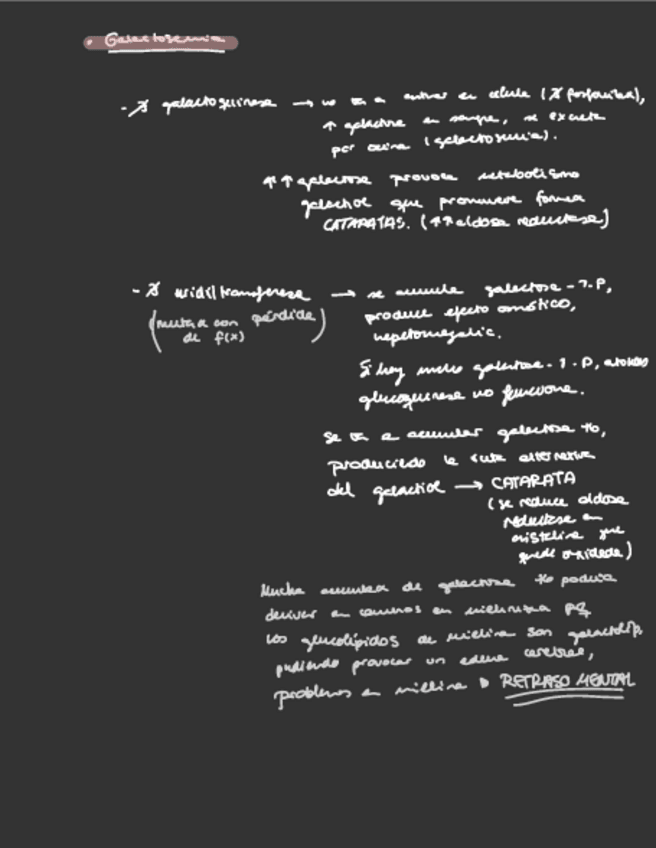 • Galactosemia
- ∄ galactoquinasa → no va a entrar en célula (∄ fosforilas),
↑ galactosa en sangre, se excreta
por orina (galactosuria).
↑↑ galactosa provoca metabolismo
galactiol que promueve formar
CATARATAS. (↑↑ aldosa reductasa)
- ∄ uridiltransferasa → se acumula galactosa-1-P,
(mutra con pérdida
de f(x))
produce efecto osmótico,
hepatomegalia.
Si hay mucho galactosa-1-P,
glucoquinasa no funciona.
Se va a acumular galactosa tb,
produciendo la ruta alternativa
del galactiol → CATARATA
(se reduce aldosa
reductasa en
cristalino que
quede oxidada)
Mucha de galactosa tb podría
derivar a cambios en mielina pq
los glucolípidos de mielina son galactolíp,
pudiendo provocar un edema cerebral,
problemas en mielina RETRASO MENTAL